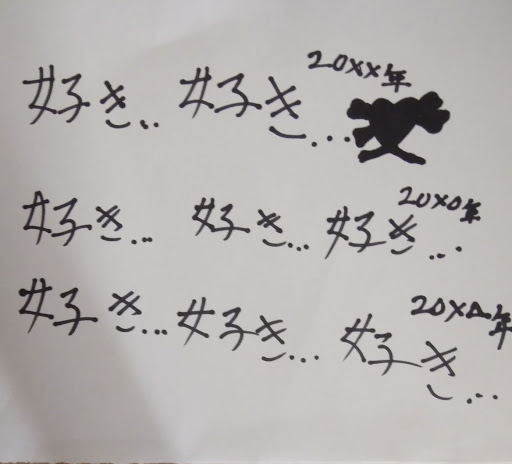 好き... 好き... 20XX年
好き... 好き... 好き... 20X0年
好き... 好き... 好き... 20X△年